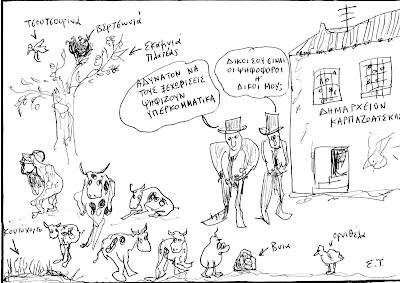 Τσουτσουρίνα
Βερτσωνιά
Σκαμνιά
Πλατέας
ΑΔΥΝΑΤΟΝ ΝΑ
ΤΟΥΣ ΞΕΧΩΡΙΣΕΙΣ
ΨΗΦΙΖΟΥΝ
ΥΠΕΡΚΟΜΜΑΤΙΚΑ
ΔΙΚΟΙ ΣΟΥ ΕΙΝΑΙ
ΟΙ ΨΗΦΟΦΟΡΟΙ
Η'
ΔΙΚΟΙ ΜΟΥ;
ΔΗΜΑΡΧΕΙΟΝ
ΚΑΡΠΑΖΟΑΤΣΚΗΣ
Κουτουχορτο
Βυια
ορνιθέλα
Ε.Τ.